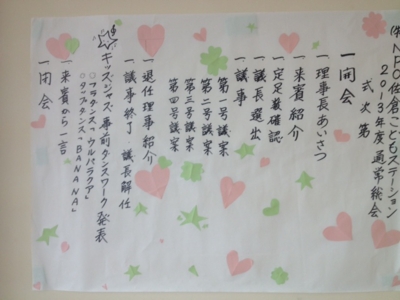 (特)NPO佐倉こどもステーション
2013年度通常総会
式次第
一、開会
一、理事長あいさつ
一、来賓紹介
一、定足数確認
一、議長選出
一、議事
第一号議案
第二号議案
第三号議案
第四号議案
一、退任理事紹介
一、議事終了 議長解任
キッズジャズ 事前ダンスワーク発表
○フラダンス「ウルパラクア」
○タップダンス「BANANA」
一、来賓から一言
一、閉会